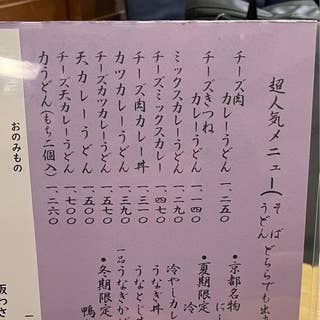 超人気メニュー(そば うどん どちらでも出ま
チーズ肉
カレーうどん 一、二五〇
チーズきつね
カレーうどん 一、一四〇
ミックスカレーうどん 一、二九〇
チーズミックスカレー 一、四七〇
チーズ肉カレー丼 一、三一〇
カツカレーうどん 一、三九〇
チーズカツカレーうどん 一、五〇〇
天カレーうどん 一、五〇〇
チーズ天カレーうどん 一、七〇〇
力うどん(もち二個入) 一、二六〇
・京都名物
にし
・夏期限定
冷
冷やしカレ
うなぎ丼
うなとじ丼
一品 うなぎかば
・冬期限定
鴨
おのみもの
板わさ